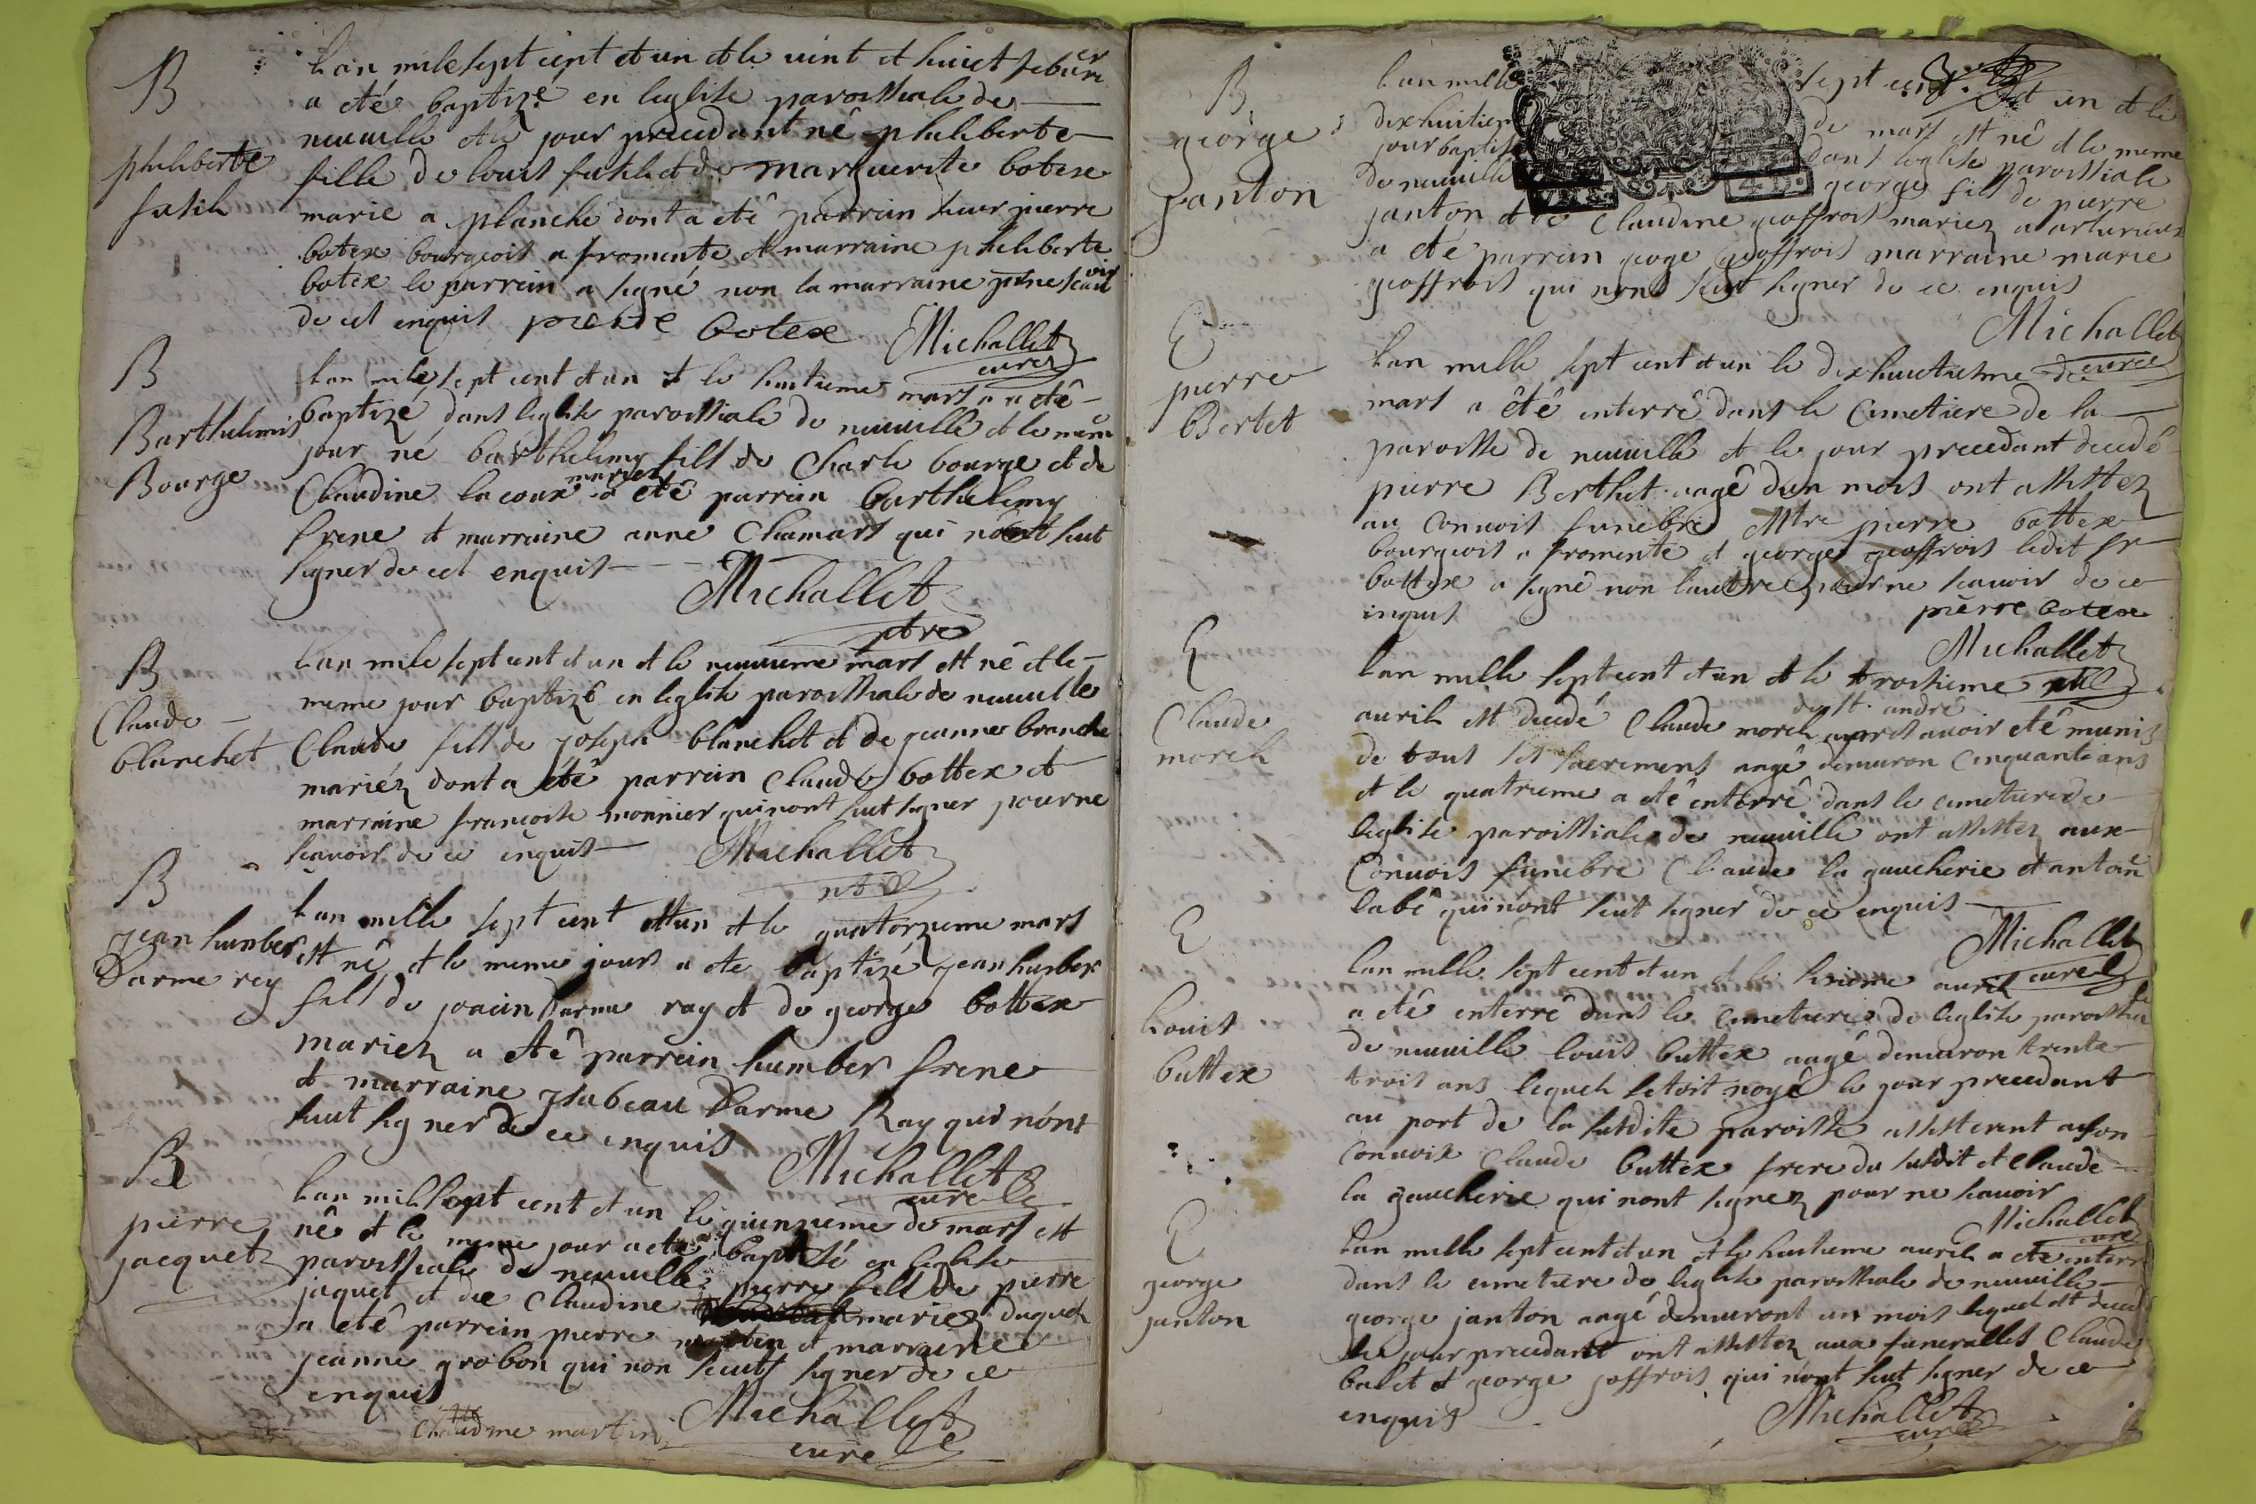 B
philiberte
fusih
Lan mile sept cent et un et le vint et huict feburier
a eté baptizé en leglise paroissiale de
neuuille et le jour precedant né philiberte
fille de louis fusih et de marguerite botex
mariè a planche dont a eté parrain sieur pierre
botex bourgeois a fromente et marraine philiberte
botex le parrein a signé non la marraine pr ne scauoir
de cet enquis pierre botex Michallet
curez
B
Barthelemis
Bourge
Lan mile sept cent et un et le huitieme mars a eté
baptizé dans leglise paroissiale de neuuille et le même
jour né barthelemy fils de Charle bourge et de
Claudine lacoux mariez a eté parrain barthelemy
frene et marraine anne Chamart qui nont seut
signer de cet enquis
Michallet
ptre
B
Claude
blanchet
Lan mile sept cent et un et le neuuieme mars est né et le
meme jour baptizé en leglise paroissiale de neuuille
Claude fils de joseph blanchet et de jeanne branche
mariéz dont a été parrein Claude bottex et
marraine francoise monnier qui nont seut signer pour ne
scauoir de ce enquis Michallet
B
jean humber
Darme rey
Lan mille sept cent et un et le quatorzieme mars
est né et le meme jour a ete baptizé jean humber
fils de joacin Darme ray et de george bottex
mariez a eté parrein humber frene
et marraine jsabeau Darme Ray qui nont
seut signer de ce enquis
Michallet
curé
B
pierre
jacquet
Lan mil sept cent et un le quinzieme de mars est
né et le meme jour a eté baptisé en leglise
paroissiale de neuuille pierre fils de pierre
jaquet et de Claudine mariez duquel
a eté parrein pierre martin et marraine
jeanne grobon qui non seut signer de ce
enquis
Claudine martin Michallet
curé
B
george
janton
Lan mille sept cent et un et le
dixhuitiem de mars est né et le meme
jour baptisé dans leglise paroissiale
de neuuille george fils de pierre
janton et de Claudine geoffrois mariez
a eté parrein george geoffrois marraine marie
geoffrois qui nont seut signer de ce enquis
Michallet
curé
E
pierre
Bertet
Lan mille sept cent et un le dixhuictiesme de
mars a été interré dans le Cimetiere de la
paroisse de neuuille et le jour precedant decedé
pierre Berthet aagé dun mois ont assistez
au Conuois funebre Mtre pierre bottex
bourgeois a fromente et george geoffrois ledit sr
bottex a signé non lautre pour ne scauoir de ce
inquis pierre botex
Michallet
E
Claude
moreh
Lan mille sept cent et un et le troisieme
de st. andré
auril est decedé Claude moreh apres auoir eté munis
de tous les sacremens aagé denuiron Cinquante ans
et le quatrieme a eté enterré dans le cimetiere de
leglise paroissiale de neuuille ont assistez aux
Conuois funebre Claude la gaucherie et antoin
labé qui nont seut signer de ce enquis
Michallet
curé
E
Louis
buttex
Lan mille sept cent et un et le auril
a eté enterré dans le Cimetiere de leglise paroissiale
de neuuille louis buttex aagé denuiron trente
trois ans lequel setoit noyé le jour precedant
au port de la susdite paroisse assisterent a son
Conuoix Claude buttex frere du susdit et Claude
la gaucherie qui nont signez pour ne scauoir
Michallet
curé
E
george
janton
Lan mille sept cent et un et le huitieme auril a eté interré
dans le cimetiere de leglise paroissiale de neuuille
george janton aagé denuiront un mois lequel est decedé
le jour precedant ont assistez aux funeralles Claude
et george joffrois qui nont seut signer de ce
enquis
Michallet
curé